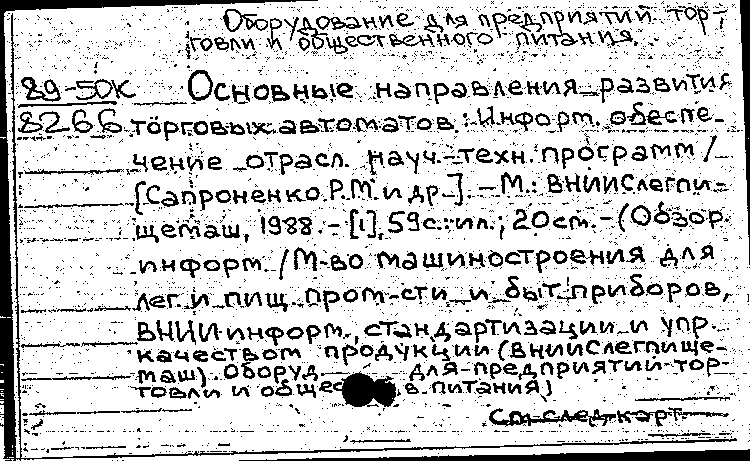 Оборудование для предприятий тор-
говли и общественного питания.
89-50К Основные направления развития
8266 торговых автоматов: Информ. обеспе-
чение отрасл. науч.-техн. программ /
[Сапроненко Р.М. и др.]. – М.: ВНИИСлегпи-
щемаш, 1988. – [1], 59с.: ил.; 20 см. – (Обзор.
информ. / М-во машиностроения для
лег. и пищ. пром-сти и быт. приборов,
ВНИИ информ., стандартизации и упр.
качеством продукции (ВНИИСлегпище-
маш). Оборуд. для предприятий тор-
говли и общес в. питания)
См след карт